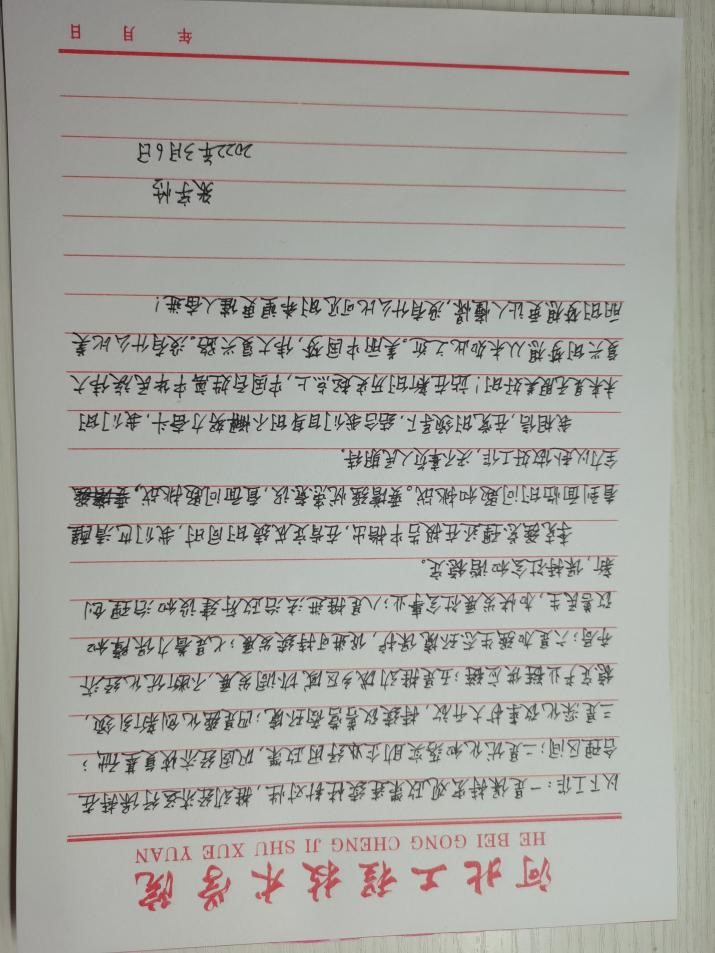 河北工程技术学院
HE BEI GONG CHENG JI SHU XUE YUAN
以下工作：一是保持宏观政策连续性针对性，推动经济运行保持在
合理区间；二是优化和落实助企纾困政策，巩固经济恢复基础；
三是深化改革扩大开放，持续改善营商环境；四是强化创新引领，
稳定产业链供应链；五是推动城乡区域协调发展，不断优化经济
布局；六是加强生态环境保护，促进可持续发展；七是着力保障和
改善民生，加快发展社会事业；八是推进法治政府建设和治理创
新，保持社会和谐稳定。
李克强总理还在报告中指出，在肯定成绩的同时，我们也清醒
看到面临的问题和挑战。要增强忧患意识，直面问题挑战，要增强
全力以赴做好工作，决不辜负人民期待。
我相信，在党的领导下，结合我们自身的不懈努力奋斗，我们的
未来是无限美好的！站在新的历史起点上，中国百姓离中华民族伟大
复兴的梦想从未如此之近。美丽中国梦，伟大复兴路。没有什么比美
丽的梦想更让人憧憬，没有什么比可见的希望更催人奋进！
张宇恬
2022年3月6日
年 月 日